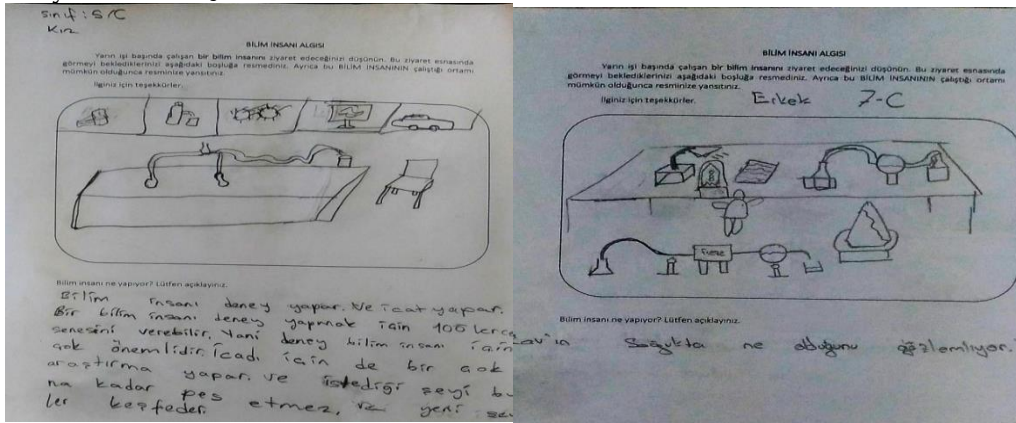 Sınıf: 5/C
Kız
BİLİM İNSANI ALGISI
Yarın işi başında çalışan bir bilim insanını ziyaret edeceğinizi düşünün. Bu ziyaret esnasında
görmeyi beklediklerinizi aşağıdaki boşluğa resmediniz. Ayrıca bu BİLİM İNSANININ çalıştığı ortamı
mümkün olduğunca resminize yansıtınız.
İlginiz için teşekkürler.
Bilim insanı ne yapıyor? Lütfen açıklayınız.
Bilim insanı deney yapar. Ve icat yapar.
Bir bilim insanı deney yapmak için 100 kerce
senesini verebilir. Yani deney bilim insanı için
çok önemlidir. İcadı için de bir çok
araştırma yapar. ve istediği şeyi bu
na kadar pes etmez, ve yeni şey
ler keşfeder.
BİLİM İNSANI ALGISI
Yarın işi başında çalışan bir bilim insanını ziyaret edeceğinizi düşünün. Bu ziyaret esnasında
görmeyi beklediklerinizi aşağıdaki boşluğa resmediniz. Ayrıca bu BİLİM İNSANININ çalıştığı ortamı
mümkün olduğunca resminize yansıtınız.
İlginiz için teşekkürler. Erkek 7-C
Bilim insanı ne yapıyor? Lütfen açıklayınız.
Soğukta ne olduğunu gözlemliyor.